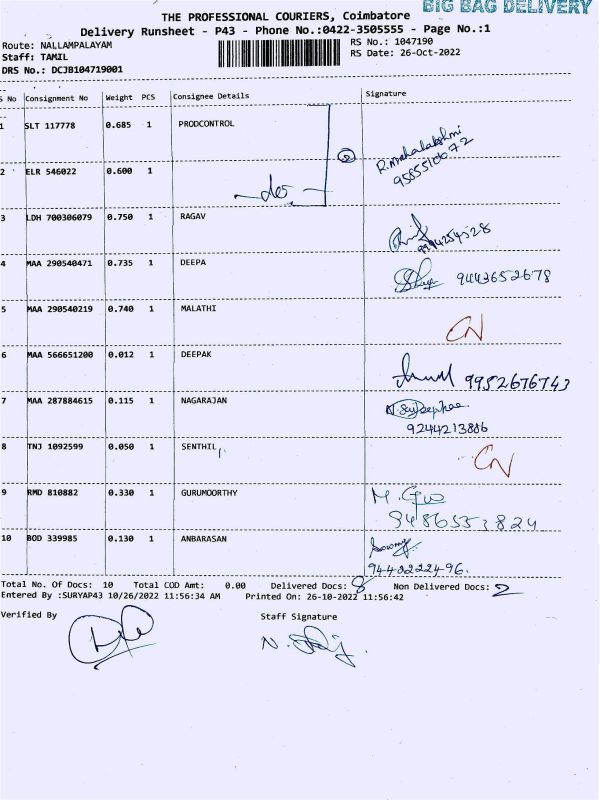 BIG BAG DELIVERY
THE PROFESSIONAL COURIERS, Coimbatore
Delivery Runsheet - P43 - Phone No.:0422-3505555 - Page No.:1
Route: NALLAMPALAYAM RS No.: 1047190
Staff: TAMIL RS Date: 26-Oct-2022
DRS No.: DCJB104719001
S No Consignment No Weight PCS Consignee Details Signature
1 SLT 117778 0.685 1 PRODCONTROL
R.mahalakshmi
2 ELR 546022 0.600 1
do
3 LDH 700306079 0.750 1 RAGAV
4 MAA 290540471 0.735 1 DEEPA 9443652678
5 MAA 290540219 0.740 1 MALATHI CN
6 MAA 566651200 0.012 1 DEEPAK 9952676743
7 MAA 287884615 0.115 1 NAGARAJAN
9244213886
8 TNJ 1092599 0.050 1 SENTHIL CN
9 RMD 810882 0.330 1 GURUMOORTHY
9486553824
10 BOD 339985 0.130 1 ANBARASAN
Total No. Of Docs: 10 Total COD Amt: 0.00 Delivered Docs: 8 Non Delivered Docs: 2
Entered By :SURYAP43 10/26/2022 11:56:34 AM Printed On: 26-10-2022 11:56:42
Verified By Staff Signature